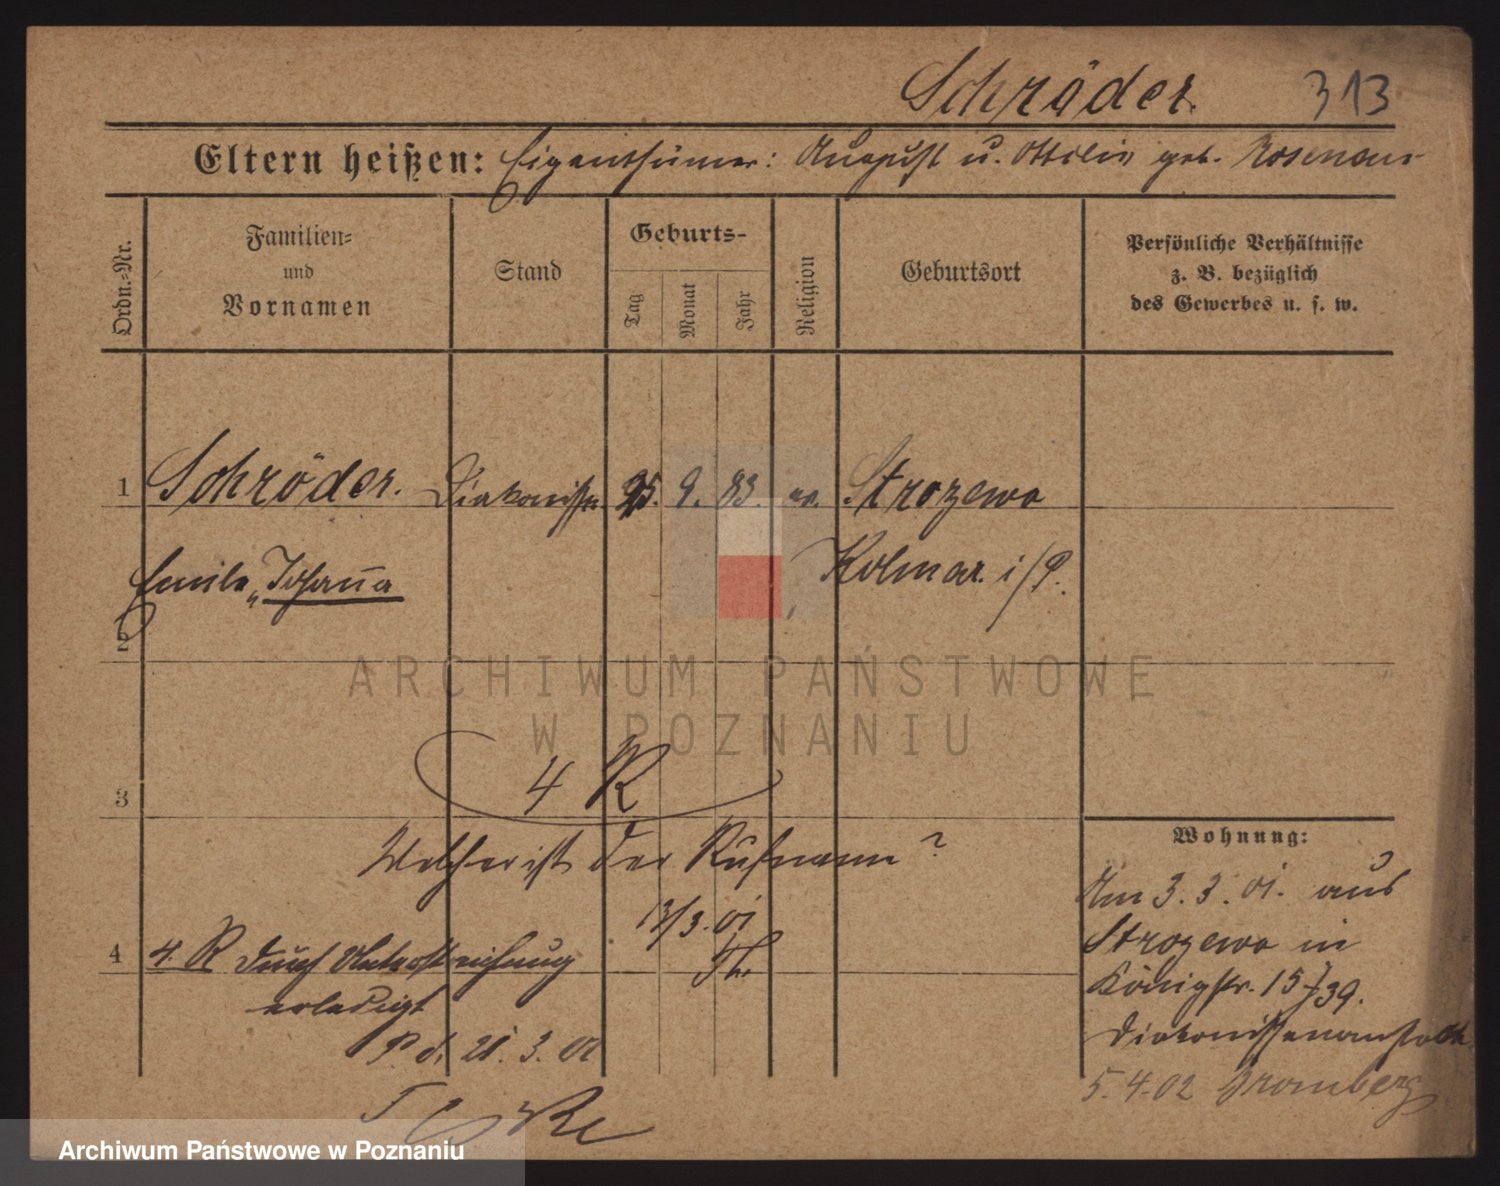 Schröder. 313
Eltern heißen: Eigenthümer: August u. Ottilie geb. Rosenau
Ordn.-Nr.
Familien-
und
Vornamen
Stand
Geburts-
Tag
Monat
Jahr
Religion
Geburtsort
Persönliche Verhältnisse
z. B. bezüglich
des Gewerbes u. s. w.
1 Schröder. Diakonisse 25. 9. 83. ev. Strozewo
Emile „Johanna Kolmar i/P.
2
3
4 R
Welcher ist der Rufname?
13/3. 01
4 4. R durch Unterstreichung
erledigt
P d. 21. 3. 01
Wohnung:
Am 3. 3. 01. aus
Strozewo in
Königstr. 15/39.
Diakonissenanstalt
5. 4. 02 Bromberg
ARCHIWUM PAŃSTWOWE
W POZNANIU
Archiwum Państwowe w Poznaniu